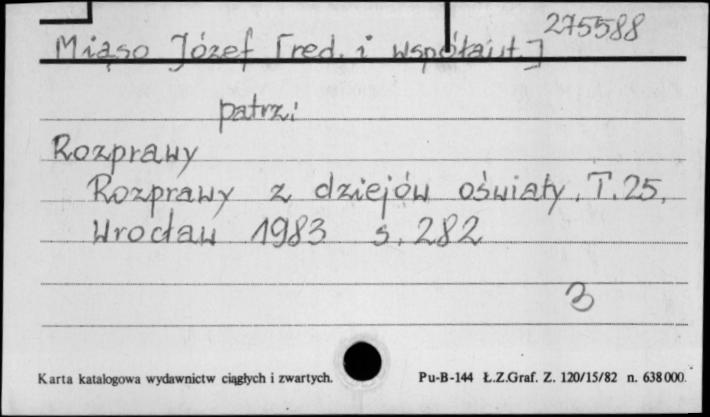 275588
Miąso Józef [red. i współaut.]
patrz:
Rozprawy
Rozprawy z dziejów oświaty. T. 25.
Wrocław 1983 s. 282
3
Karta katalogowa wydawnictw ciągłych i zwartych. Pu-B-144 Ł.Z.Graf. Z. 120/15/82 n. 638 000.